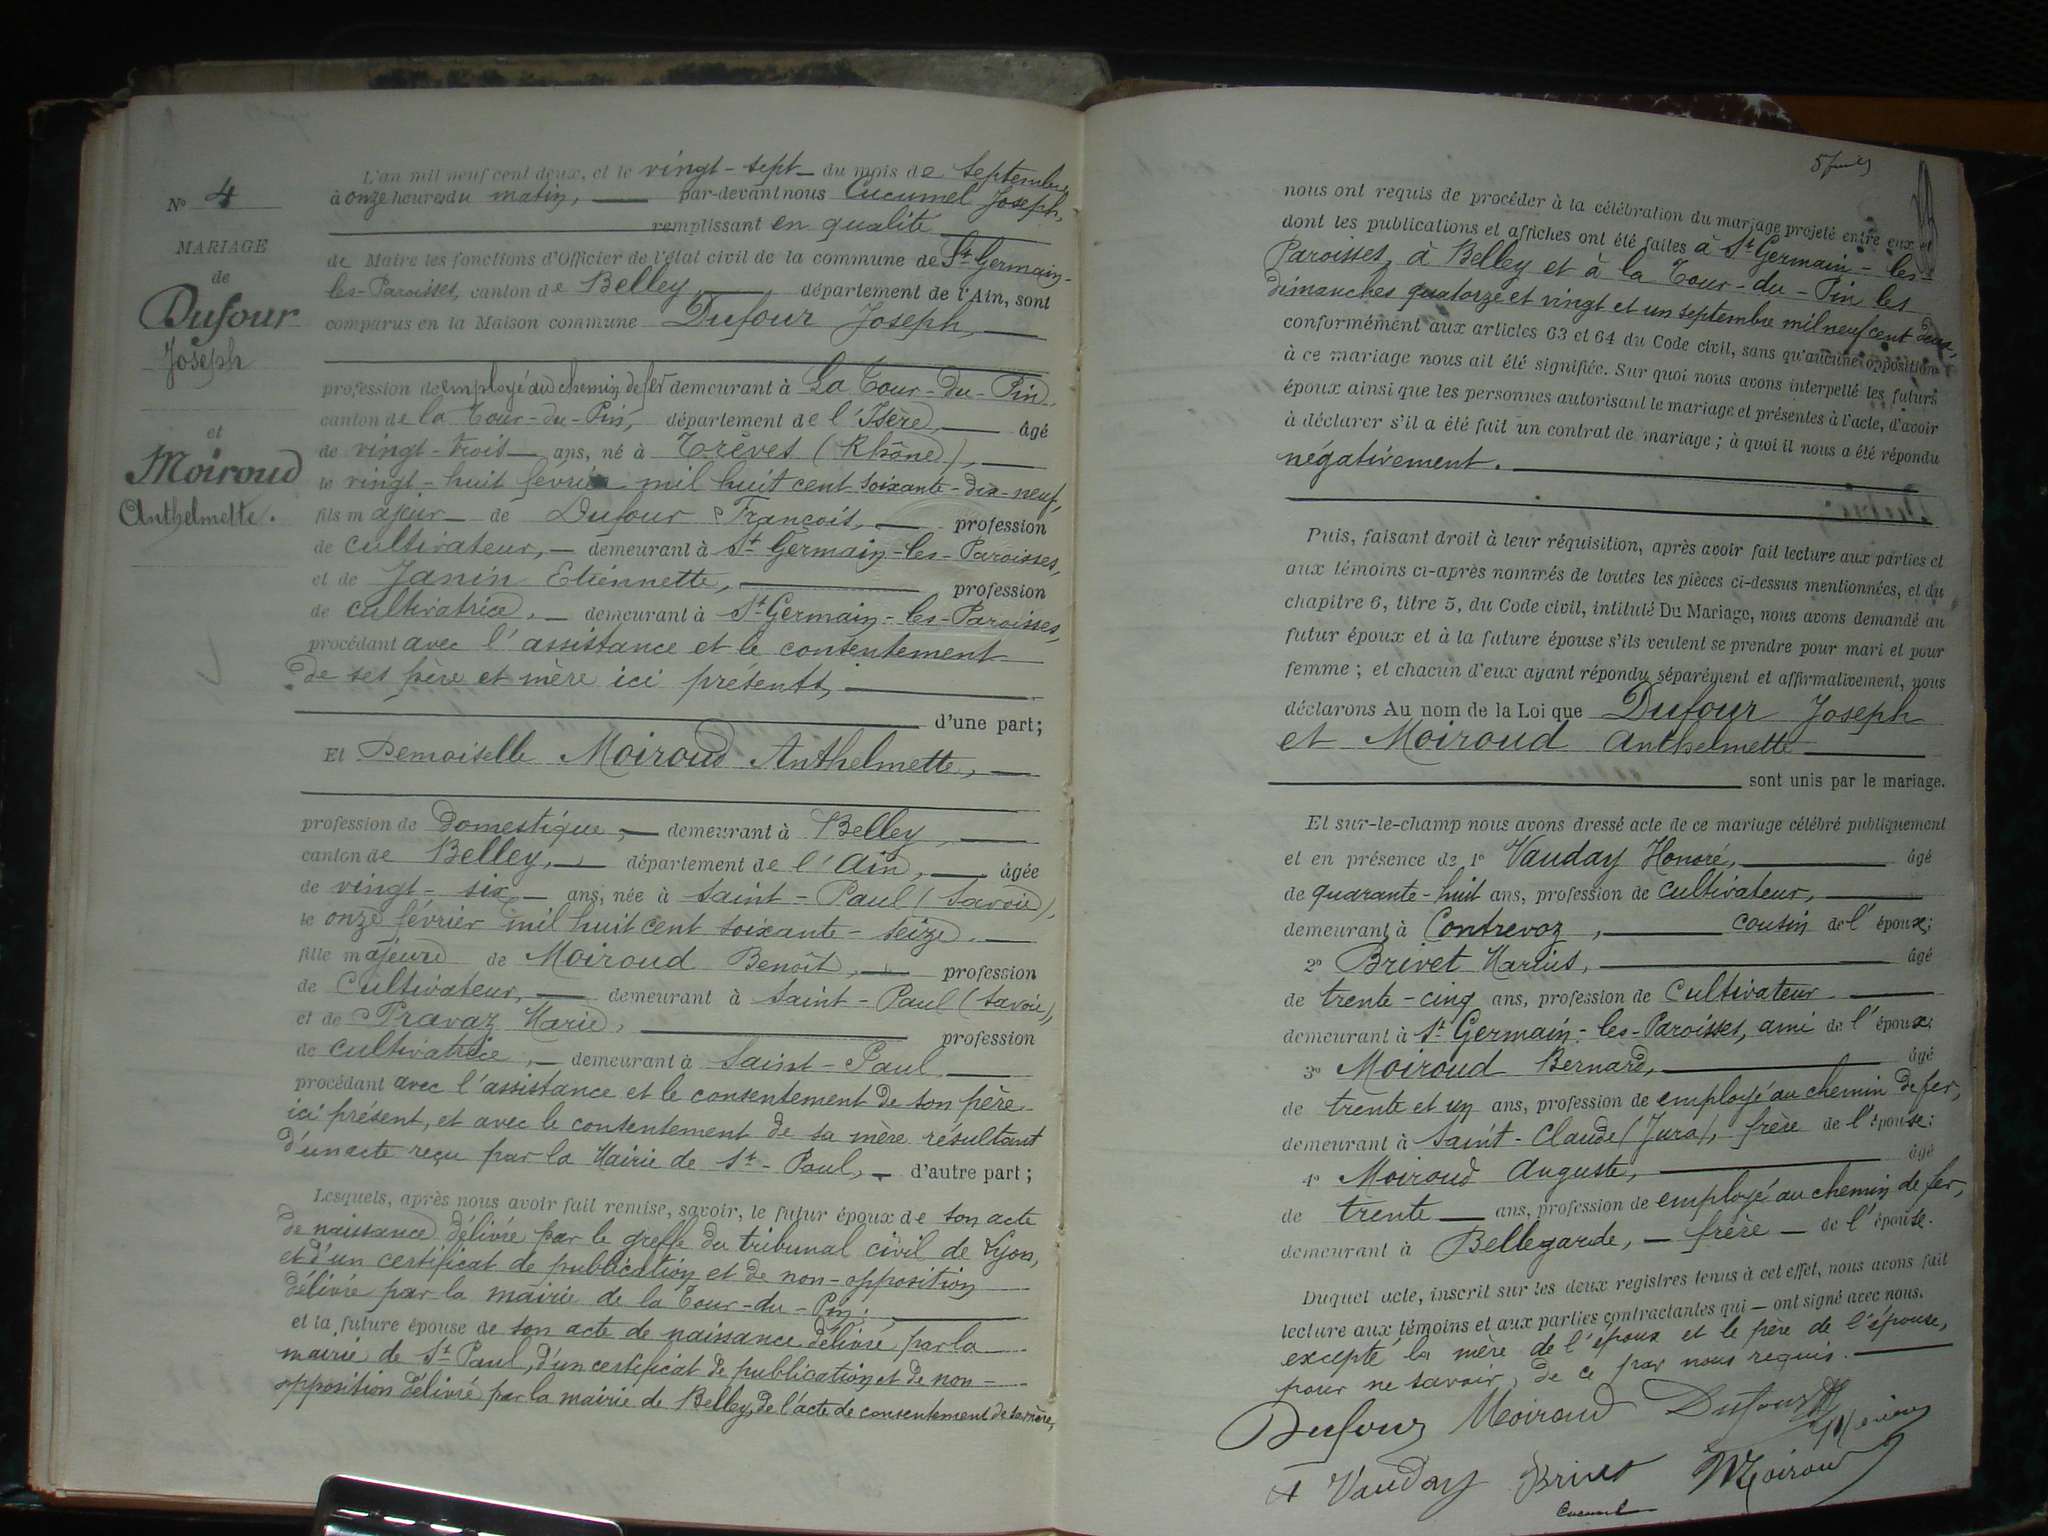 N° 4
MARIAGE
de
Dufour
Joseph
et
Moiroud
Anthelmette.
L'an mil neuf cent deux, et le vingt-sept du mois de Septembre
à onze heures du matin, par-devant nous Cucumel Joseph,
remplissant en qualité
de Maire les fonctions d'Officier de l'état civil de la commune de St Germain-
les-Paroisses, canton de Belley, département de l'Ain, sont
comparus en la Maison commune Dufour Joseph,
profession de employé au chemin de fer demeurant à La Tour-du-Pin
canton de la Tour-du-Pin, département de l'Isère, âgé
de vingt-trois ans, né à Trèves (Rhône),
le vingt-huit février mil huit cent soixante-dix-neuf,
fils majeur de Dufour François, profession
de cultivateur, demeurant à St Germain-les-Paroisses,
et de Janin Etiennette, profession
de cultivatrice, demeurant à St Germain-les-Paroisses,
procédant avec l'assistance et le consentement
de ses père et mère ici présents,
d'une part;
Et Demoiselle Moiroud Anthelmette,
profession de domestique, demeurant à Belley,
canton de Belley, département de l'Ain, âgée
de vingt-six ans, née à Saint-Paul (Savoie),
le onze février mil huit cent soixante-seize,
fille majeure de Moiroud Benoît, profession
de Cultivateur, demeurant à Saint-Paul (Savoie),
et de Pravaz Marie, profession
de cultivatrice, demeurant à Saint-Paul
procédant avec l'assistance et le consentement de son père
ici présent, et avec le consentement de sa mère résultant
d'un acte reçu par la Mairie de St-Paul, d'autre part;
Lesquels, après nous avoir fait remise, savoir, le futur époux de son acte
de naissance délivré par le greffe du tribunal civil de Lyon,
et d'un certificat de publication et de non-opposition
délivré par la mairie de la Tour-du-Pin.
et la future épouse de son acte de naissance délivré par la
mairie de St Paul, d'un certificat de publication et de non-
opposition délivré par la mairie de Belley, de l'acte de consentement de sa mère,
nous ont requis de procéder à la célébration du mariage projeté entre eux et
dont les publications et affiches ont été faites à St Germain-les-
Paroisses, à Belley et à la Tour-du-Pin les
dimanches quatorze et vingt et un septembre mil neuf cent deux,
conformément aux articles 63 et 64 du Code civil, sans qu'aucune opposition
à ce mariage nous ait été signifiée. Sur quoi nous avons interpellé les futurs
époux ainsi que les personnes autorisant le mariage et présentes à l'acte, d'avoir
à déclarer s'il a été fait un contrat de mariage; à quoi il nous a été répondu
négativement.
Puis, faisant droit à leur réquisition, après avoir fait lecture aux parties et
aux témoins ci-après nommés de toutes les pièces ci-dessus mentionnées, et du
chapitre 6, titre 5, du Code civil, intitulé Du Mariage, nous avons demandé au
futur époux et à la future épouse s'ils veulent se prendre pour mari et pour
femme; et chacun d'eux ayant répondu séparément et affirmativement, nous
déclarons Au nom de la Loi que Dufour Joseph
et Moiroud Anthelmette
sont unis par le mariage.
Et sur-le-champ nous avons dressé acte de ce mariage célébré publiquement
et en présence de 1° Vauday Honoré, âgé
de quarante-huit ans, profession de cultivateur,
demeurant à Contrevoz, cousin de l'époux;
2° Brivet Marius, âgé
de trente-cinq ans, profession de cultivateur
demeurant à St Germain-les-Paroisses, ami de l'époux;
3° Moiroud Bernard, âgé
de trente et un ans, profession de employé au chemin de fer,
demeurant à Saint-Claude (Jura), frère de l'épouse;
4° Moiroud Auguste, âgé
de trente ans, profession de employé au chemin de fer,
demeurant à Bellegarde, frère de l'épouse.
Duquel acte, inscrit sur les deux registres tenus à cet effet, nous avons fait
lecture aux témoins et aux parties contractantes qui ont signé avec nous,
excepté la mère de l'époux et le père de l'épouse,
pour ne savoir, de ce par nous requis.
Dufour Moiroud Dufour
Vauday Brivet Moiroud
Cucumel